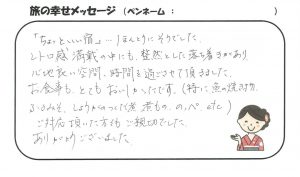 旅の幸せメッセージ (ペンネーム : )
「ちょっといい宿」…ほんとうにそうでした。
レトロ感満載の中にも、整然とした落ち着きがあり
心地良い空間、時間を過ごさせて頂きました。
お食事も、とてもおいしかったです。(特に魚の焼き物、
しょうがの 煮もの、のっぺ etc)
ご対応頂いた方も ご親切でした。
ありがとうございました。